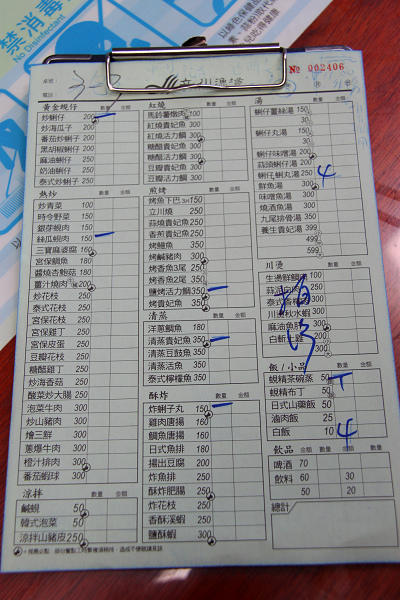 禁消毒
No Disinfectant
桌號 3-3
立川漁場
№ 002406
電話
黃金蜆仔 數量 金額
炒蜊仔 200
炒海瓜子 200
番茄炒蜊子 200
黑胡椒蜊仔 200
麻油蜊仔 250
奶油蜊仔 250
泰式炒蜊子 250
熱炒 數量 金額
炒青菜 100
時令野菜 150
銀芽蜆肉 150
絲瓜蜆肉 150
三寶麻婆腐 160
宮保鯛魚 180
醬燒杏鮑菇 180
薑汁燒肉 200
炒花枝 250
泰式花枝 250
宮保花枝 250
宮保雞丁 250
宮保皮蛋 250
豆瓣花枝 250
糖醋雞丁 250
炒海香菇 250
酸菜炒大腸 250
泡菜牛肉 300
炒山豬肉 300
燴三鮮 300
蔥爆牛肉 300
橙汁排肉 300
番茄蝦球 300
涼拌 數量 金額
鹹蜆 50
韓式泡菜 50
涼拌山豬皮 250
紅燒 數量 金額
馬鈴薯燉肉 100
紅燒貴妃魚 300
紅燒活力鯛 300
糖醋貴妃魚 300
糖醋活力鯛 300
豆瓣貴妃魚 300
豆瓣活力鯛 300
煎烤 數量 金額
烤魚下巴 3片 150
立川燒 350
蒜燒貴妃魚 350
香煎貴妃魚 350
烤鰻魚 350
烤鹹豬肉 300
烤香魚3尾 250
烤香魚2尾
鹽烤活力鯛 350
烤貴妃魚 350
清蒸 數量 金額
洋蔥鯛魚 180
清蒸貴妃魚 350
清蒸豆鼓魚 350
清蒸活魚 350
泰式檸檬魚 350
酥炸 數量 金額
炸蜊子丸 150
雞肉唐揚 160
鯛魚唐揚 180
日式魚排 180
揚出豆腐 200
炸魚排 250
酥炸肥腸 250
炸花枝 250
香酥溪蝦 250
鹽酥蝦 300
湯 數量 金額
蜊仔薑絲湯 150
300
蜊仔丸湯 150
300
蜊仔味噌湯 200
蒜頭蜊仔湯 200
蜊仔蜊丸湯 250 4
鮮魚湯 300
味噌魚湯 300
燒酒魚湯 300
九尾排骨湯 350
養生貴妃湯 399
499
599
川燙 數量 金額
生邊鮮鯛 100
200
200
麻油魚
白斬土雞
300
飯/小品 數量 金額
蜆精茶碗蒸 50
蜆精布丁 50
日式山藥飯 50
滷肉飯 25
白飯 10 4
飲品 金額 數量 金額
啤酒 70
飲料 60 30
50 20
總計